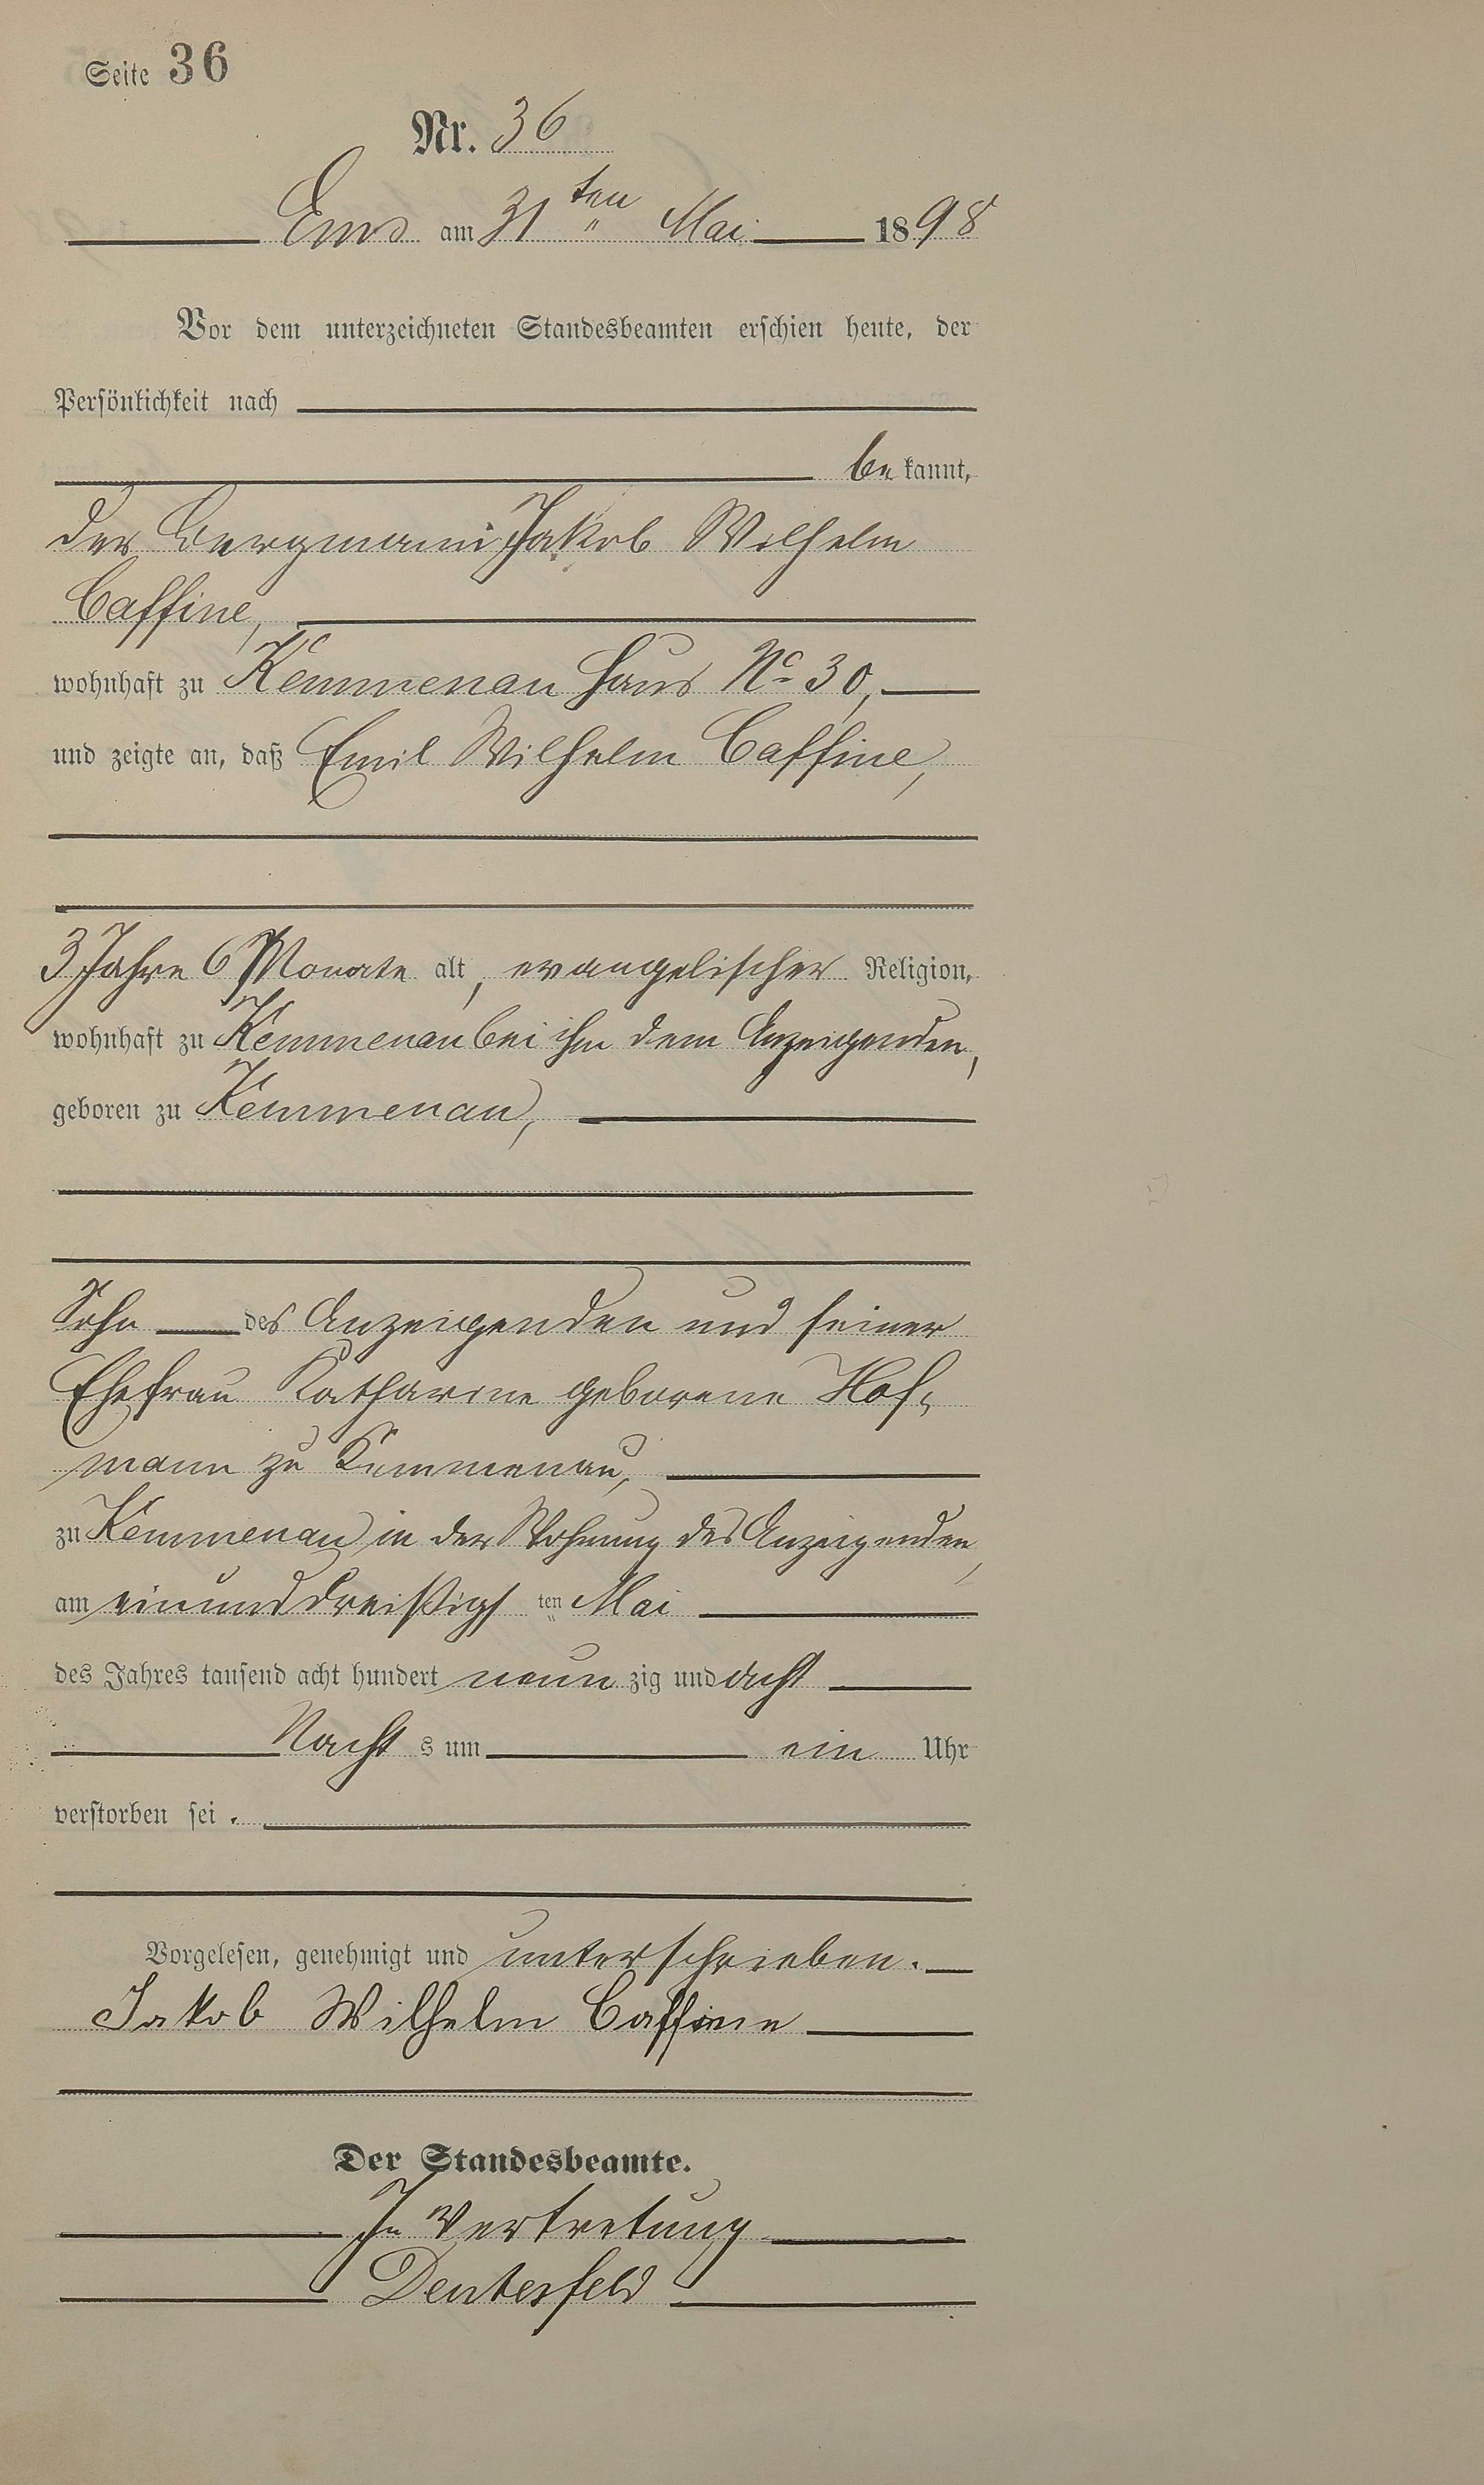 Seite 36
Nr. 36
Ems am 31ten Mai 1898
Vor dem unterzeichneten Standesbeamten erschien heute, der
Persönlichkeit nach
be kannt,
der Bergmann Jakob Wilhelm
Caffine,
wohnhaft zu Kemmenau Haus No 30,
und zeigte an, daß Emil Wilhelm Caffine,
3 Jahre 6 Monate alt, evangelischer Religion,
wohnhaft zu Kemmenau bei ihm dem Anzeigenden,
geboren zu Kemmenau,
Sohn des Anzeigenden und seiner
Ehefrau Katharine geborene Hof-
mann zu Kemmenau,
zu Kemmenau in der Wohnung des Anzeigenden,
am einunddreißigsten Mai
des Jahres tausend acht hundert neun zig und acht
Nacht s um ein Uhr
verstorben sei.
Vorgelesen, genehmigt und unterschrieben.
Jakob Wilhelm Caffine
Der Standesbeamte.
In Vertretung